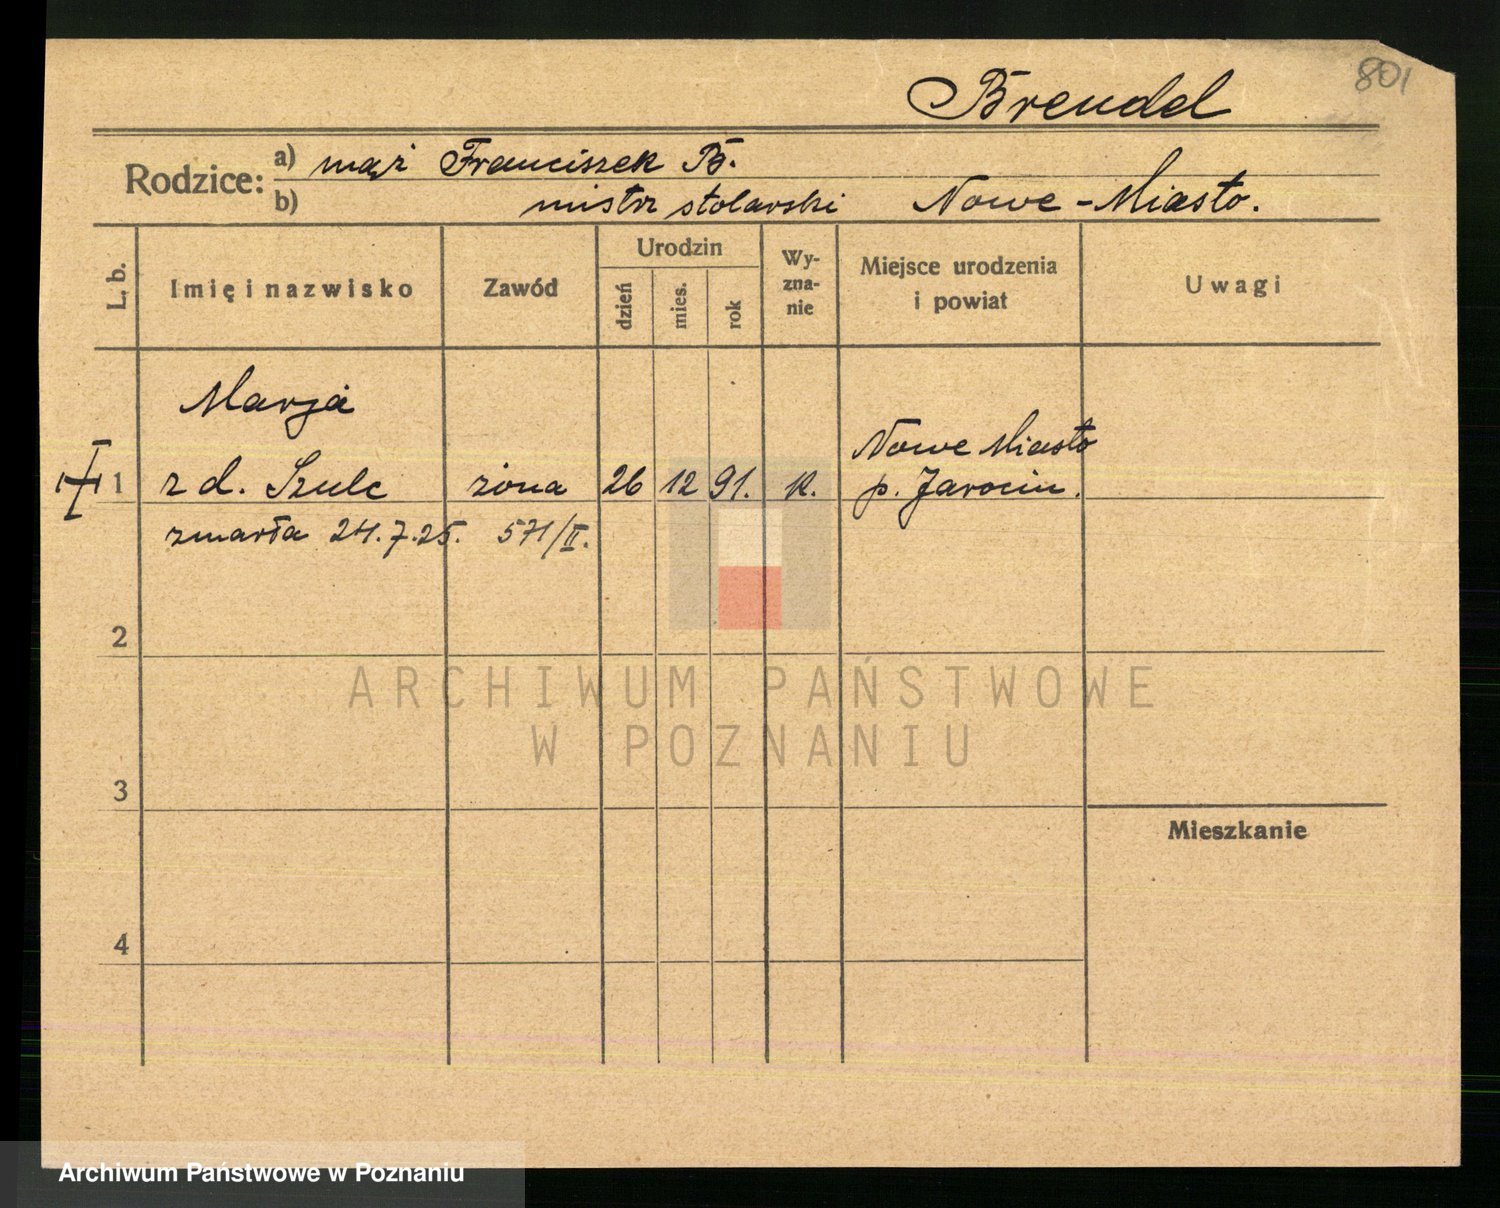 801
Brendel
Rodzice: a) mąż Franciszek B.
b) mistrz stolarski Nowe-Miasto.
L. b. Imię i nazwisko Zawód Urodzin dzień mies. rok Wy-zna-nie Miejsce urodzenia i powiat Uwagi
Marja
Nowe Miasto
1 z d. Szulc żona 26 12 91. k. p. Jarocin.
zmarła 24.7.25. 571/II.
2
ARCHIWUM PAŃSTWOWE
W POZNANIU
3
Mieszkanie
4
Archiwum Państwowe w Poznaniu